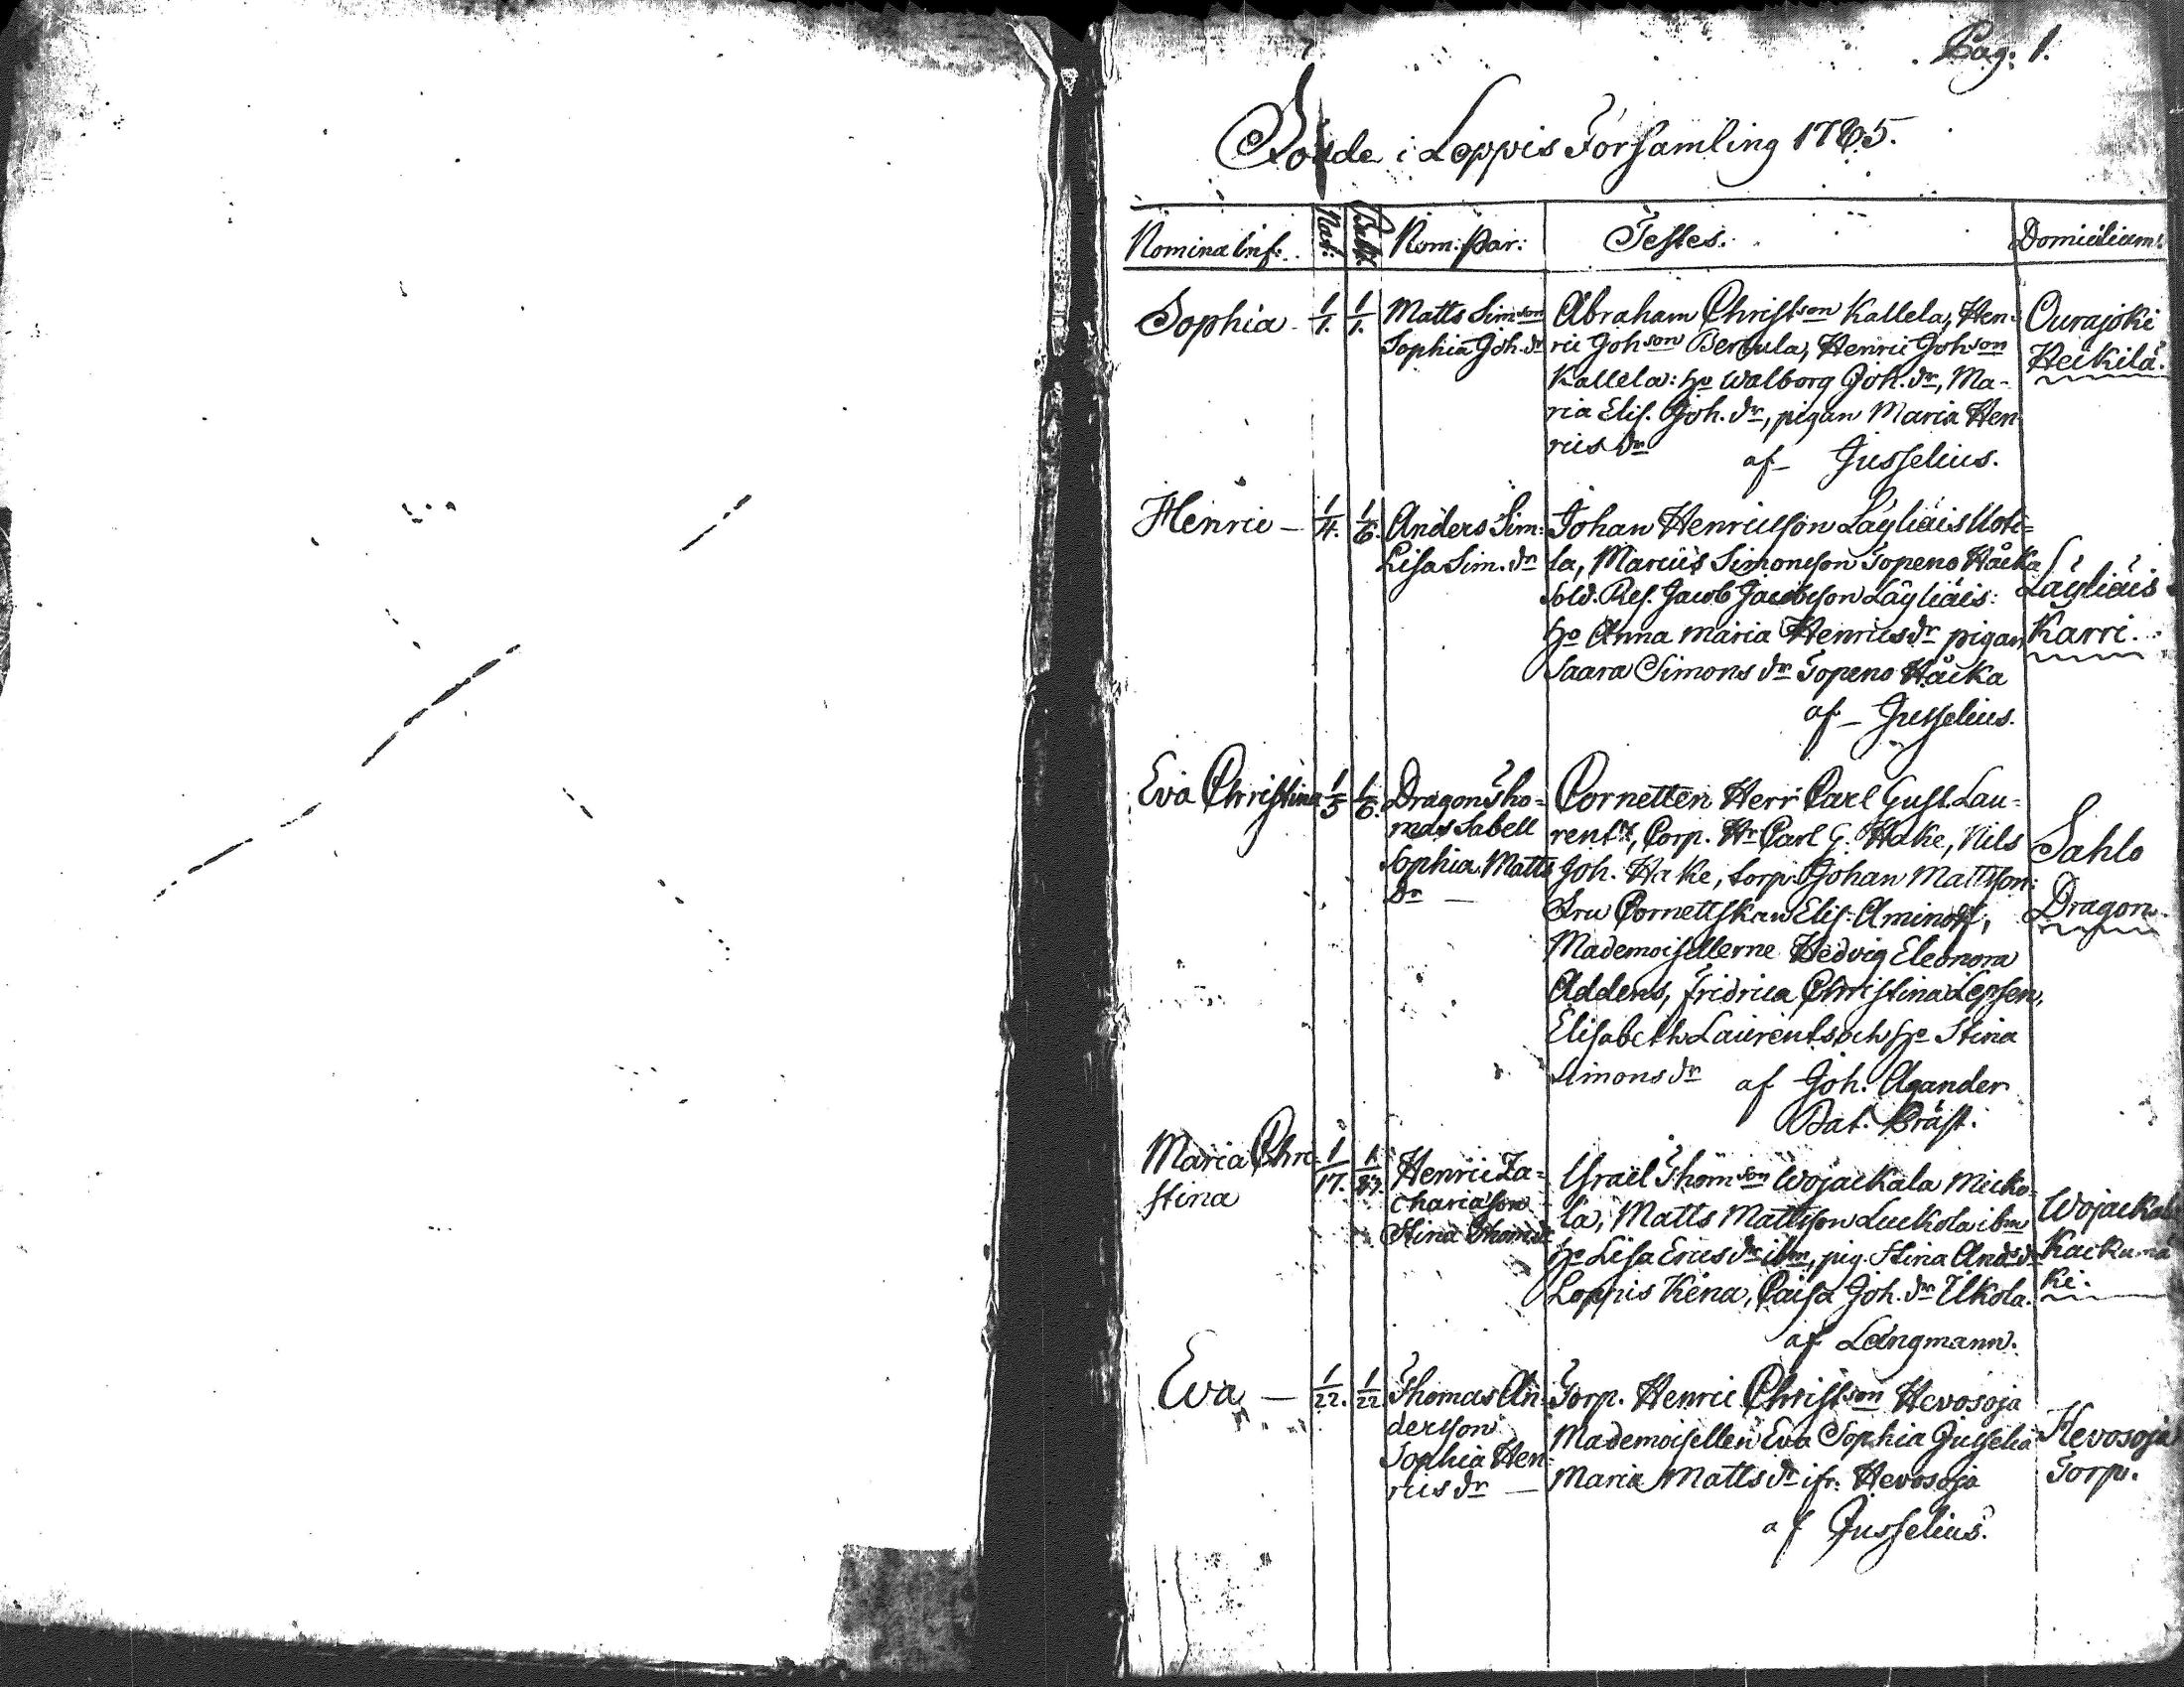 Pag: 1.
Födde i Loppis Församling 1785.
Nomina Inf: Nat: Bapt: Nom: Par: Testes. Domicilium
Sophia 1/1. 1/1. Matts Simson
Sophia Joh. dr
Abraham Christson Kallela, Hen-
ric Johson Bertula, Henric Johson
Kallela: ho Walborg Joh. dr, Ma-
ria Elis. Joh. dr, pigan Maria Hen
rics dr
af Jusselius.
Ourajoki
Heikilä.
Henric — 1/4. 1/6. Anders Sim:
Lisa Sim. dr
Johan Henricsson Läyliäis Uoti=
la, Marcus Simonsson Topeno Håcka
Sold. Res. Jacob Jacobsson Läyliäis:
ho Anna Maria Henricsdr pigan
Saara Simons dr Topeno Håcka
af Jusselius.
Läyliäis
Karri.
Eva Christina 1/5 1/6. Dragon Tho=
mas Sabell
Sophia Matts
dr —
Cornetten Herr Carl Gust. Lau=
rents, Corp. Hr Carl G. Hake, Nils
Joh. Hake, torp. Johan Mattsson:
Fru Cornettskan Elis. Aminoff,
Mademoisellerne Hedvig Eleonora
Addens, Fridrica Christina Lepsen,
Elisabeth Laurents och ho Stina
Simons dr af Joh. Agander
Bat. Präst.
Sahlo
Dragon.
Maria Chri-
stina
1/17. 1/27. Henric Za=
chariasson
Stina Thom. dr
Israel Thomson Wojackala Micko=
la, Matts Mattsson Luckola ibm
ho Lisa Erics dr ibm, pig. Stina Ands dr
Loppis Kena, Caisa Joh. dr Ilkola.
af Långmann.
Wojackala
Kackumä
ki.
Eva — 1/22. 1/22 Thomas An-
dersson
Sophia Hen-
rics dr —
Torp. Henric Christson Hevosoja
Mademoisellen Eva Sophia Jusselia
Maria Matts dr ifr. Hevosoja
af Jusselius.
Hevosoja
Torp.